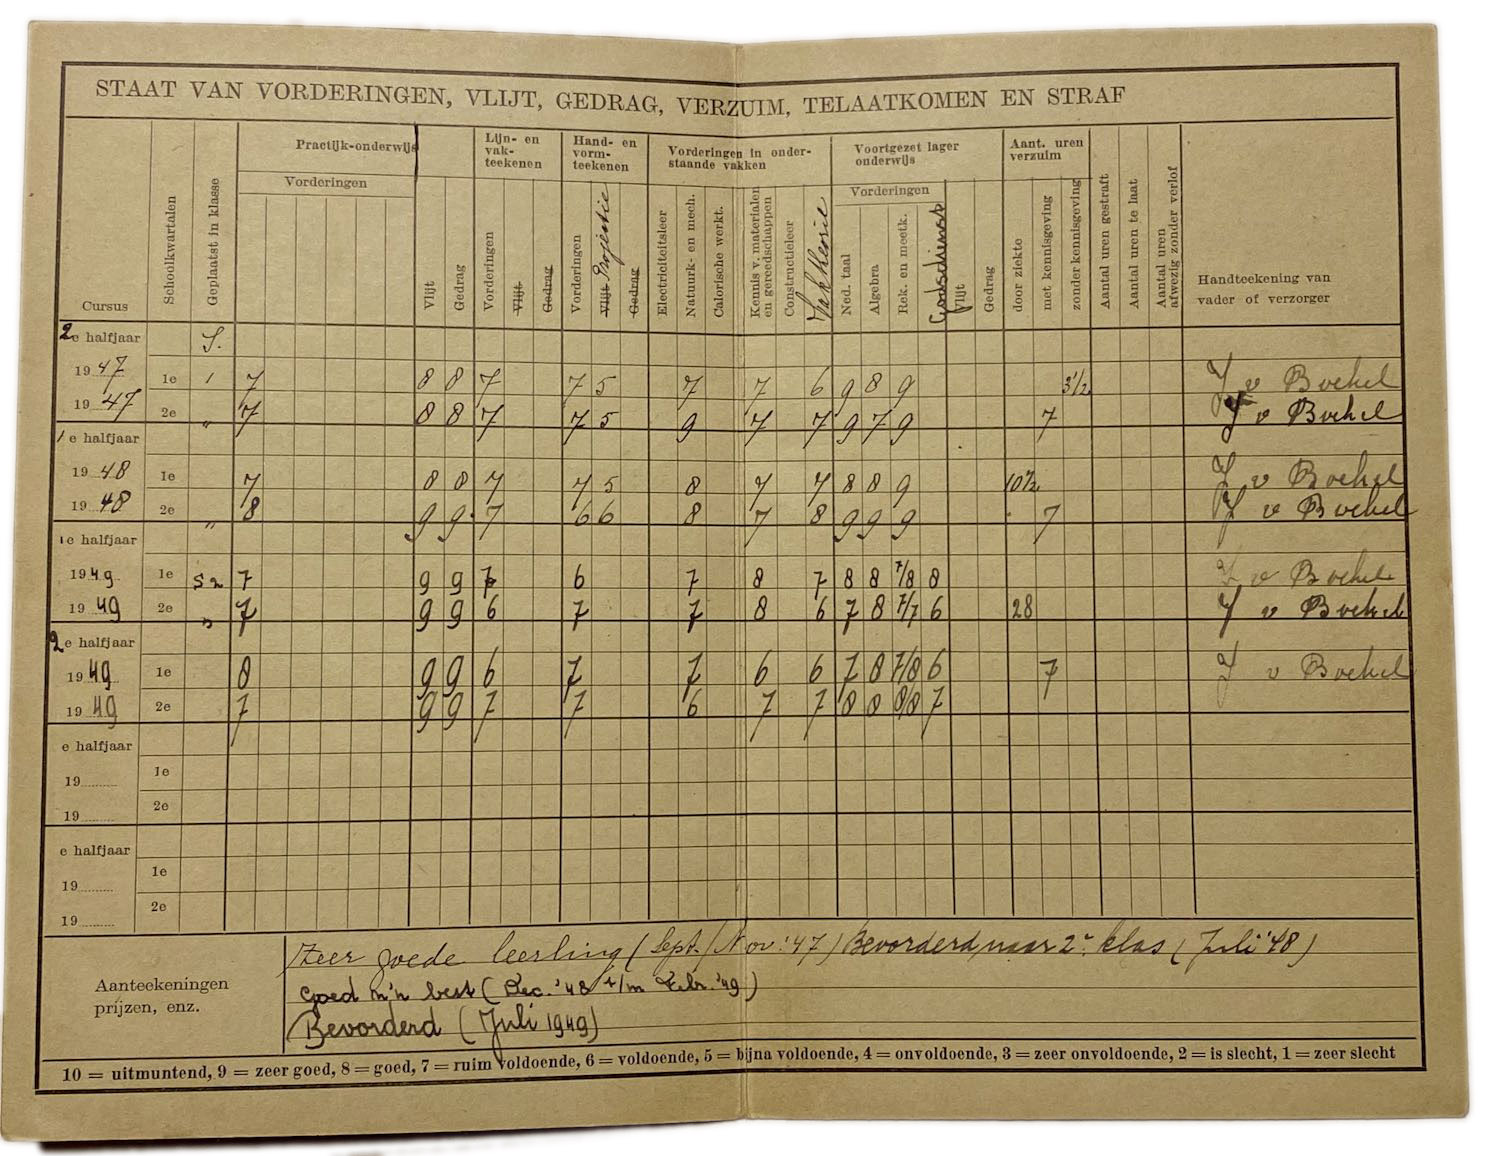 STAAT VAN VORDERINGEN, VLIJT, GEDRAG, VERZUIM, TELAATKOMEN EN STRAF
Cursus
Schoolkwartalen
Geplaatst in klasse
Practijk-onderwijs
Vorderingen
Vlijt
Gedrag
Lijn- en
vak-
teekenen
Vorderingen
Vlijt
Gedrag
Hand- en
vorm-
teekenen
Vorderingen
Vlijt Projectie
Gedrag
Vorderingen in onder-
staande vakken
Electriciteitsleer
Natuurk- en mech.
Calorische werkt.
Kennis v. materialen
en gereedschappen
Constructieleer
Vaktheorie
Voortgezet lager
onderwijs
Vorderingen
Ned. taal
Algebra
Rek. en meetk.
Godsdienst
Vlijt
Gedrag
Aant. uren
verzuim
door ziekte
met kennisgeving
zonder kennisgeving
Aantal uren gestraft
Aantal uren te laat
Aantal uren
afwezig zonder verlof
Handteekening van
vader of verzorger
2e halfjaar S.
1947 1e 1 7 8 8 7 7 5 7 7 6 9 8 9 3½ J v Boekel
1947 2e " 7 8 8 7 7 5 9 7 7 9 7 9 7 J v Boekel
1e halfjaar
1948 1e 7 8 8 7 7 5 8 7 7 8 8 9 10½ J v Boekel
1948 2e " 8 9 9 7 6 6 8 7 8 9 9 9 7 J v Boekel
1e halfjaar
1949 1e S2 7 9 9 7 6 7 8 7 8 8 7/8 8 J v Boekel
1949 2e " 7 9 9 6 7 7 8 6 7 8 7/7 6 28 J v Boekel
2e halfjaar
1949 1e 8 9 9 6 7 7 6 6 7 8 7/8 6 7 J v Boekel
1949 2e 7 9 9 7 7 6 7 7 8 8 8/8 7
e halfjaar
19........ 1e
19........ 2e
e halfjaar
19........ 1e
19........ 2e
Aanteekeningen
prijzen, enz.
Zeer goede leerling (Sept./Nov. '47) Bevorderd naar 2e klas (Juli '48)
Goed m'n best (Dec. '48 t/m Febr. '49)
Bevorderd (Juli 1949)
10 = uitmuntend, 9 = zeer goed, 8 = goed, 7 = ruim voldoende, 6 = voldoende, 5 = bijna voldoende, 4 = onvoldoende, 3 = zeer onvoldoende, 2 = is slecht, 1 = zeer slecht